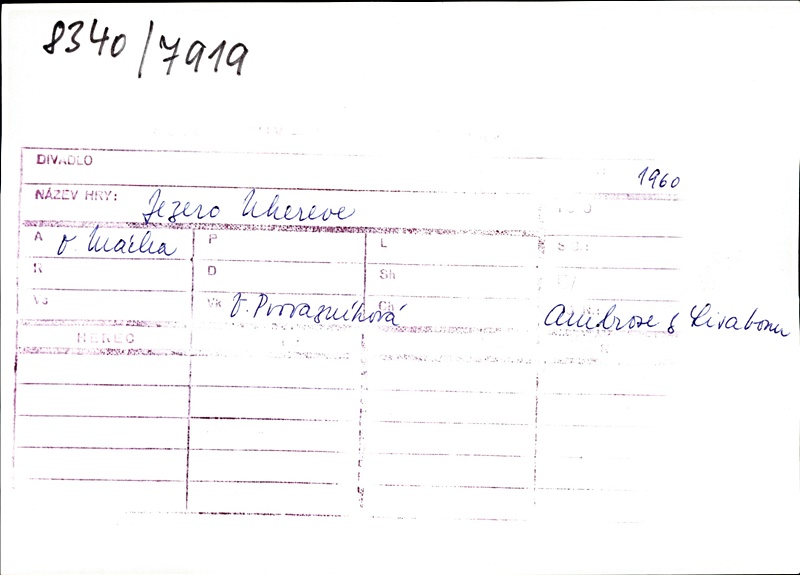 8340/7919
DIVADLO
1960
NÁZEV HRY: Jezero Ukereve
A V. Mácha P L
R D Sh
Vs Vk V. Provazníková Ch Ambrose z Lisabonu
HEREC